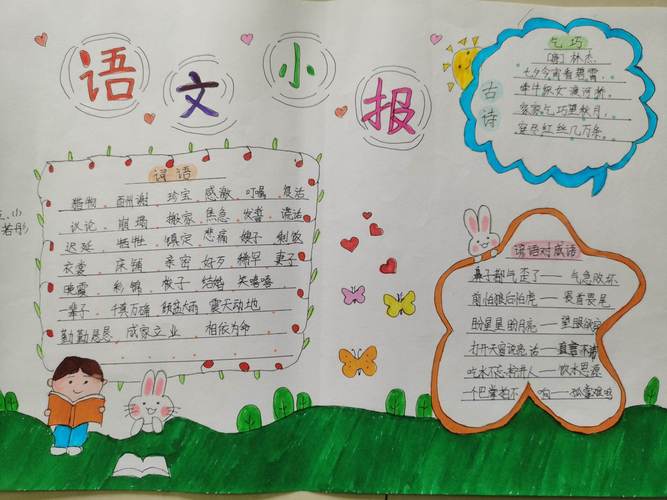 语文小报
词语
猎物 酬谢 珍宝 感激 叮嘱 复活
议论 崩塌 搬家 焦急 发誓 谎话
迟延 牺牲 镇定 悲痛 嫂子 剩饭
衣裳 床铺 亲密 好歹 稀罕 妻子
晚霞 彩锦 梭子 结婚 笑嘻嘻
一辈子 千真万确 倾盆大雨 震天动地
勤勤恳恳 成家立业 相依为命
古诗
乞巧
[唐] 林杰
七夕今宵看碧霄，
牵牛织女渡河桥。
家家乞巧望秋月，
穿尽红丝几万条。
谚语对成语
鼻子都气歪了——气急败坏
前怕狼后怕虎——畏首畏尾
盼星星盼月亮——望眼欲穿
打开天窗说亮话——直言不讳
吃水不忘挖井人——饮水思源
一个巴掌拍不响——孤掌难鸣